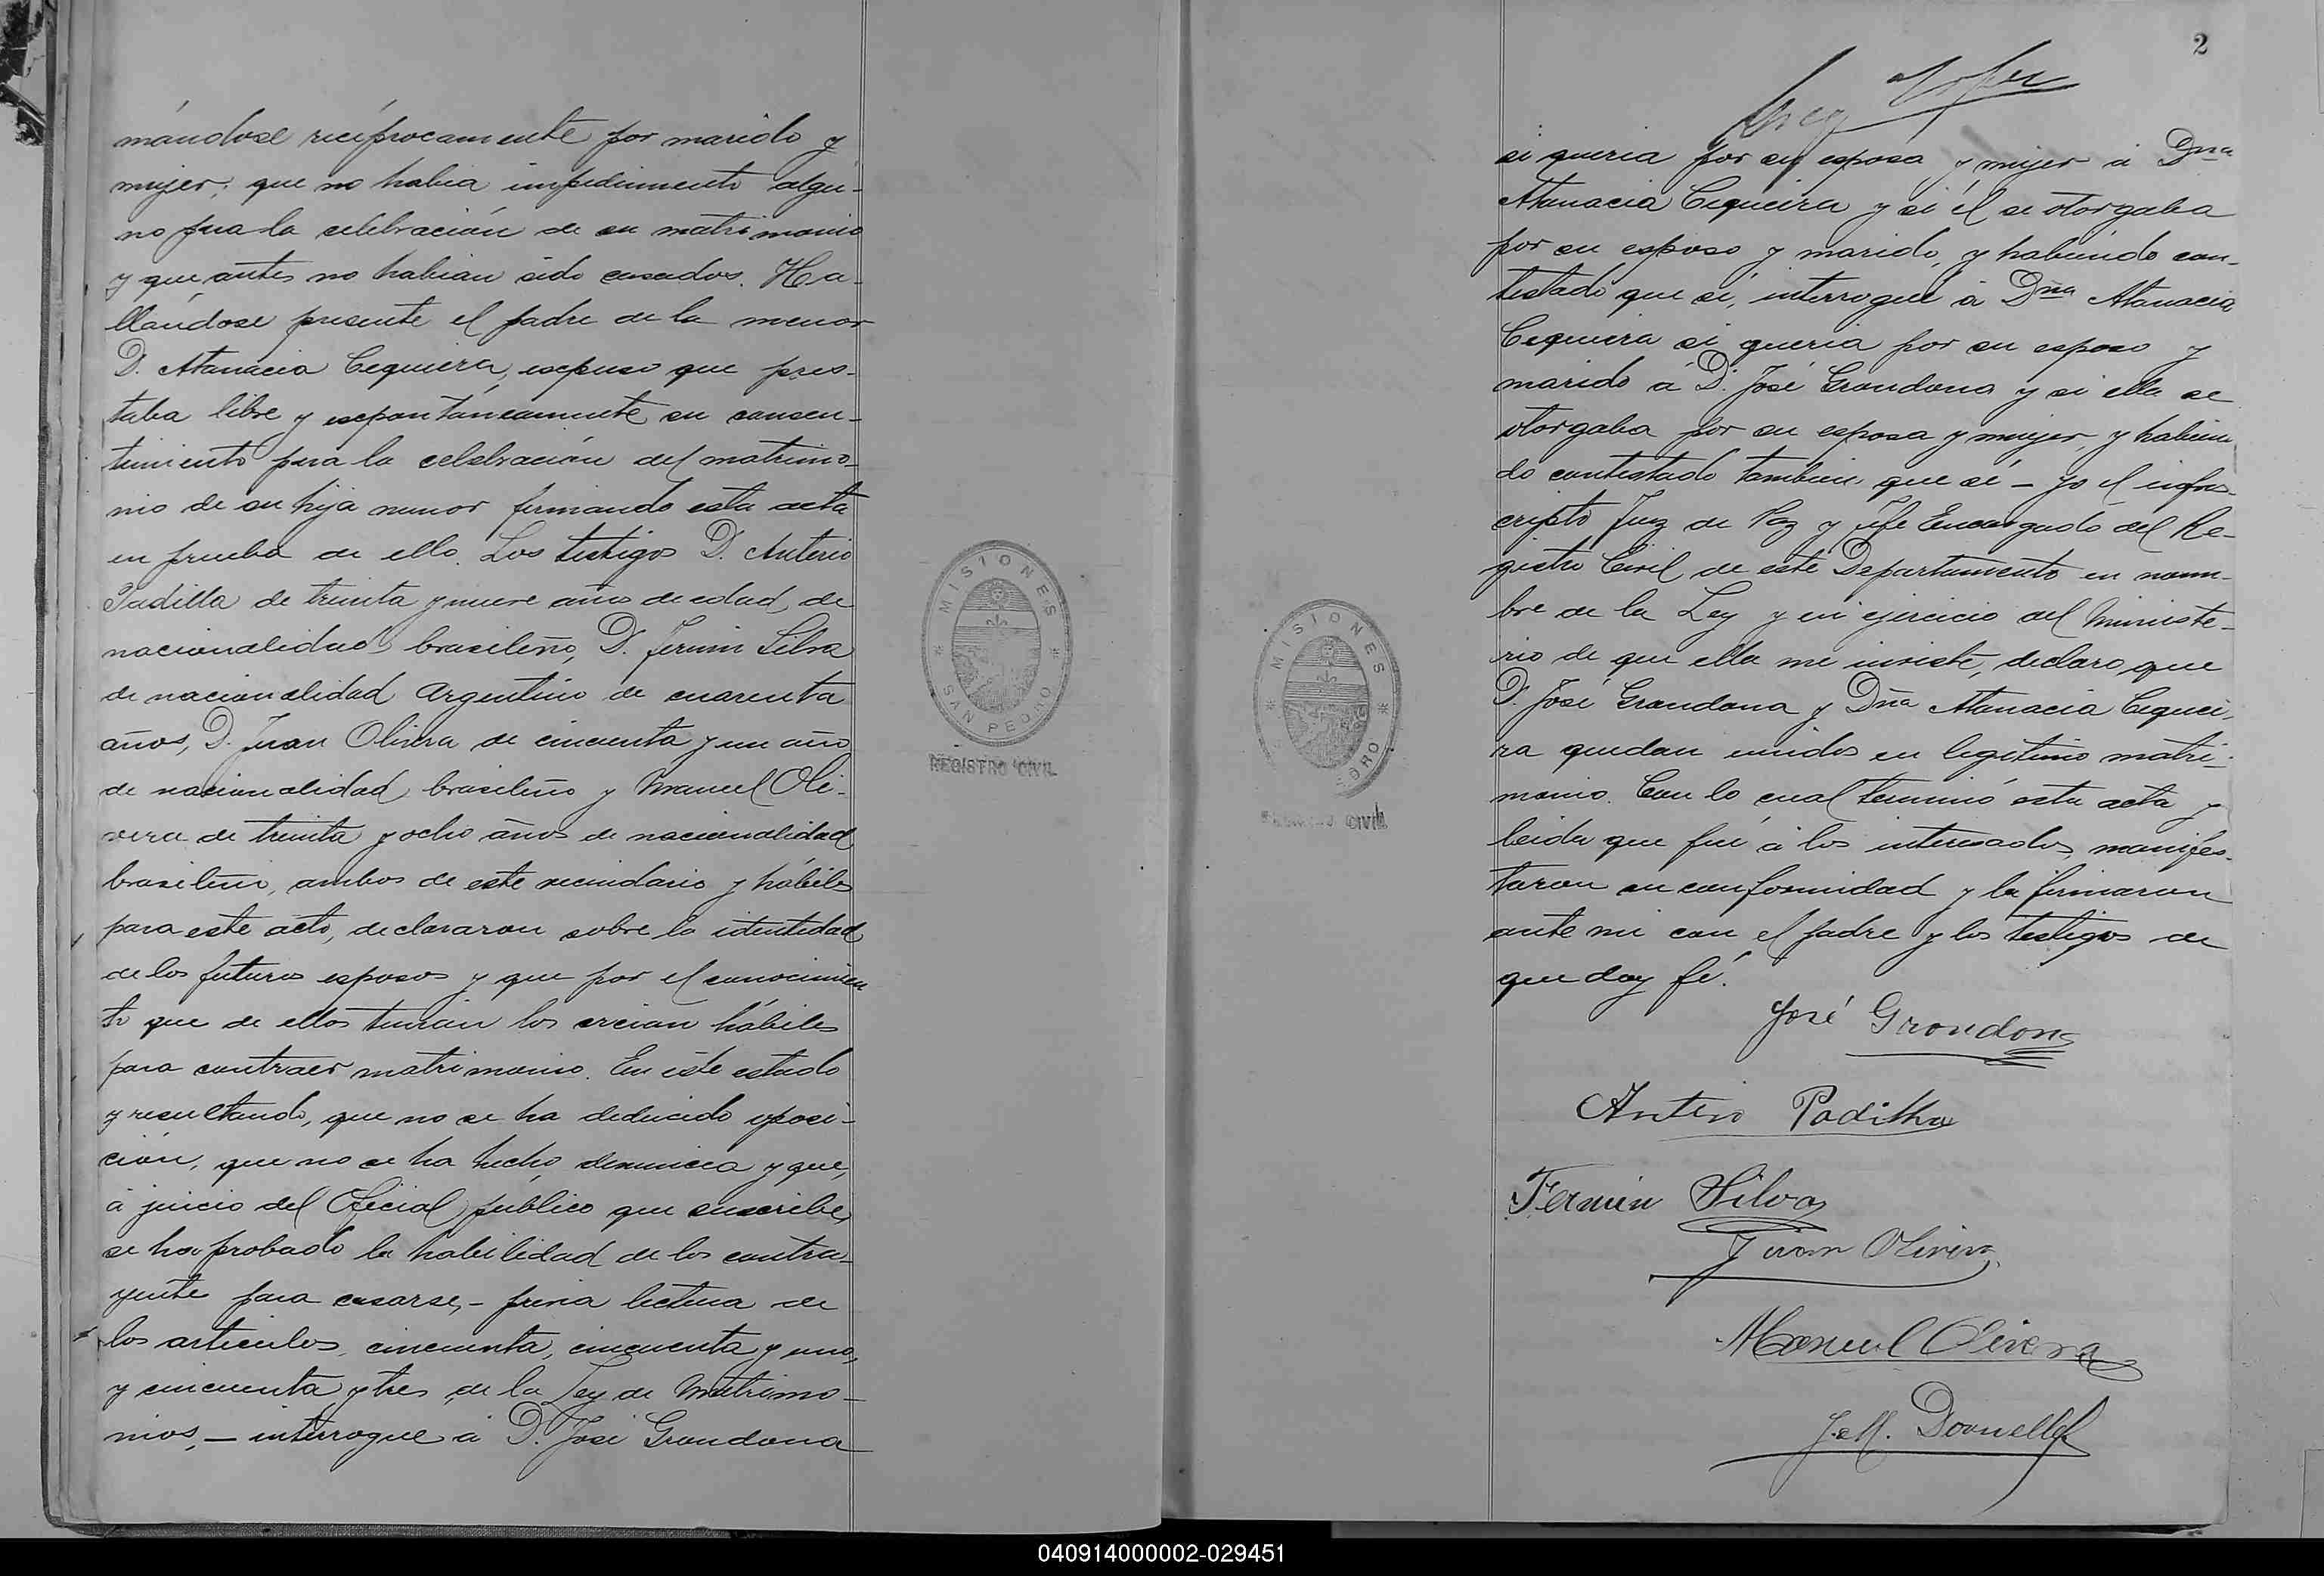 mándose recíprocamente por marido y
mujer; que no habia impedimento algu-
no para la celebración de su matrimonio
y que antes no habian sido casados. Ha-
llándose presente el padre de la menor
D. Atanacia Cequiera, escpuso que pres-
taba libre y escpontáneamente su consen-
timiento para la celebración del matrimo-
nio de su hija menor firmando esta acta
en prueba de ello. Los testigos D. Anterio
Padilla de treinta y nueve años de edad, de
nacionalidad brasileño, D. Fermin Silva
de nacionalidad Argentino de cuarenta
años, D. Juan Olivera de cincuenta y un año
de nacionalidad brasileño y Manuel Oli-
vera de treinta y ocho años de nacionalidad
brasileño, ambos de este vecindario y hábiles
para este acto, declararon sobre la identidad
de los futuros esposos y que por el conocimien
to que de ellos tenian los creian hábiles
para contraer matrimonio. En éste estado
y resultando, que no se ha deducido oposi-
ción, que no se ha hecho denuncia y que,
á juicio del Oficial público que suscribe,
se ha probado la habilidad de los contra-
yente para casarse, - previa lectura de
los articulos, cincuenta, cincuenta y uno,
y cincuenta y tres de la Ley de Matrimo-
nios, — interrogue á D. José Grondona
MISIONES
SAN PEDRO
REGISTRO CIVIL
2
si queria por su esposa y mujer á Dña
Atanacia Cequeira y si él se otorgaba
por su esposo y marido, y habiendo con-
testado que sí, interrogué á Dña Atanacia
Cequiera si queria por su esposo y
marido á D. José Grondona y si ella se
otorgaba por su esposa y mujer, y habien
do contestado tambien que sí — yo el infras-
cripto Juez de Paz y Jefe Encargado del Re-
gistro Civil de este Departamento en nom-
bre de la Ley y en ejercicio del Ministe-
rio de que ella me inviste, declaro que
D. José Grondona y Dña Atanacia Cequei-
ra quedan unidos en legítimo matri-
monio. Con lo cual terminó esta acta y
leida que fué á los interesados, manifes-
taron su conformidad y la firmaron
ante mi con el padre y los testigos de
que doy fé.
MISIONES
CIVIL
José Grondona
Antero Padilha
Fermin Silva
Juan Olivera
Manuel Olivera
040914000002-029451